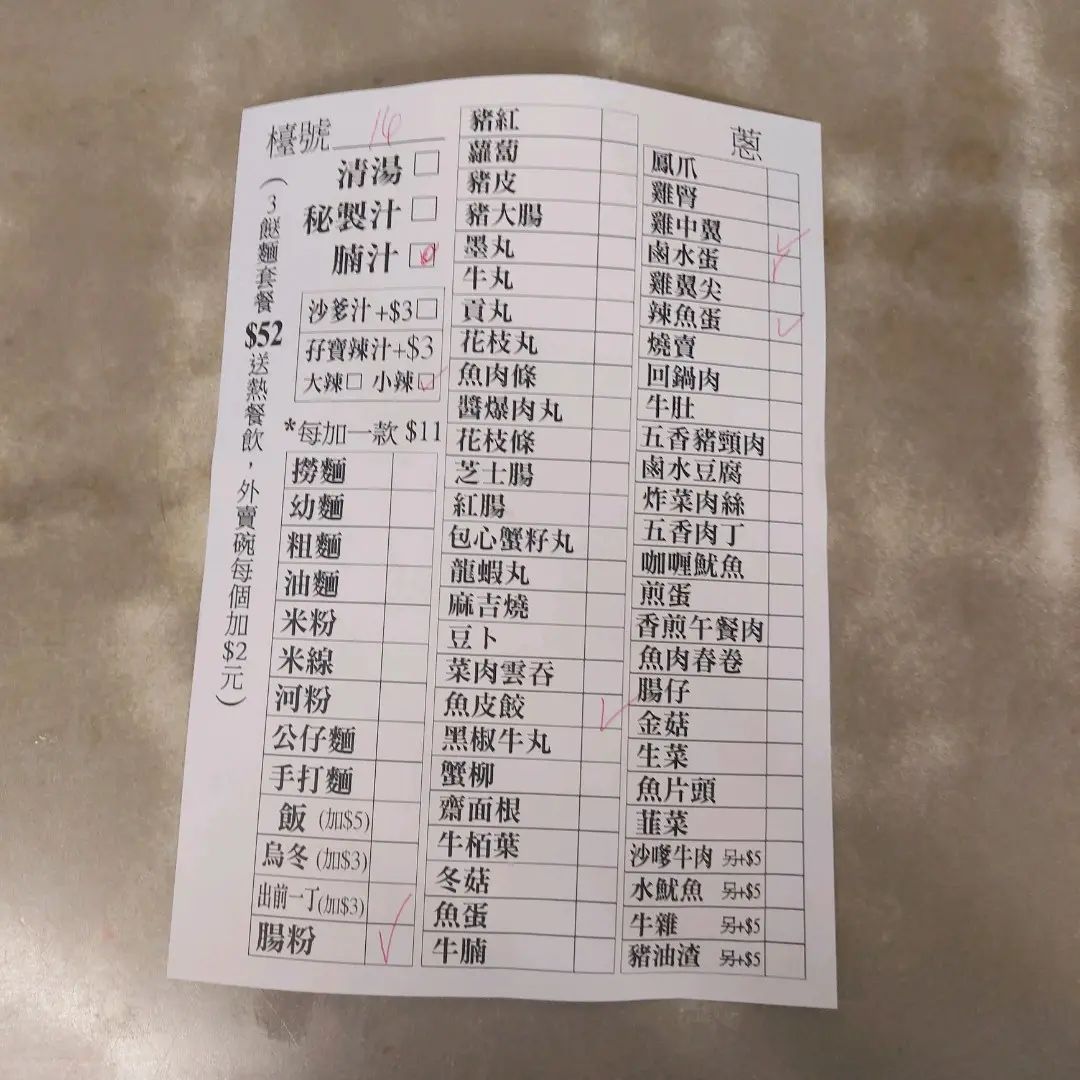 檯號 16
清湯 □
秘製汁 □
腩汁 □
(3餸麵套餐$52送熱餐飲，外賣碗每個加$2元)
沙爹汁+$3□
孖寶辣汁+$3
大辣□ 小辣□
*每加一款 $11
撈麵
幼麵
粗麵
油麵
米粉
米線
河粉
公仔麵
手打麵
飯 (加$5)
烏冬 (加$3)
出前一丁(加$3)
腸粉
豬紅
蘿蔔
豬皮
豬大腸
墨丸
牛丸
貢丸
花枝丸
魚肉條
醬爆肉丸
花枝條
芝士腸
紅腸
包心蟹籽丸
龍蝦丸
麻吉燒
豆卜
菜肉雲吞
魚皮餃
黑椒牛丸
蟹柳
齋面根
牛栢葉
冬菇
魚蛋
牛腩
蔥
鳳爪
雞腎
雞中翼
鹵水蛋
雞翼尖
辣魚蛋
燒賣
回鍋肉
牛肚
五香豬頸肉
鹵水豆腐
炸菜肉絲
五香肉丁
咖喱魷魚
煎蛋
香煎午餐肉
魚肉春卷
腸仔
金菇
生菜
魚片頭
韮菜
沙嗲牛肉 另+$5
水魷魚 另+$5
牛雜 另+$5
豬油渣 另+$5